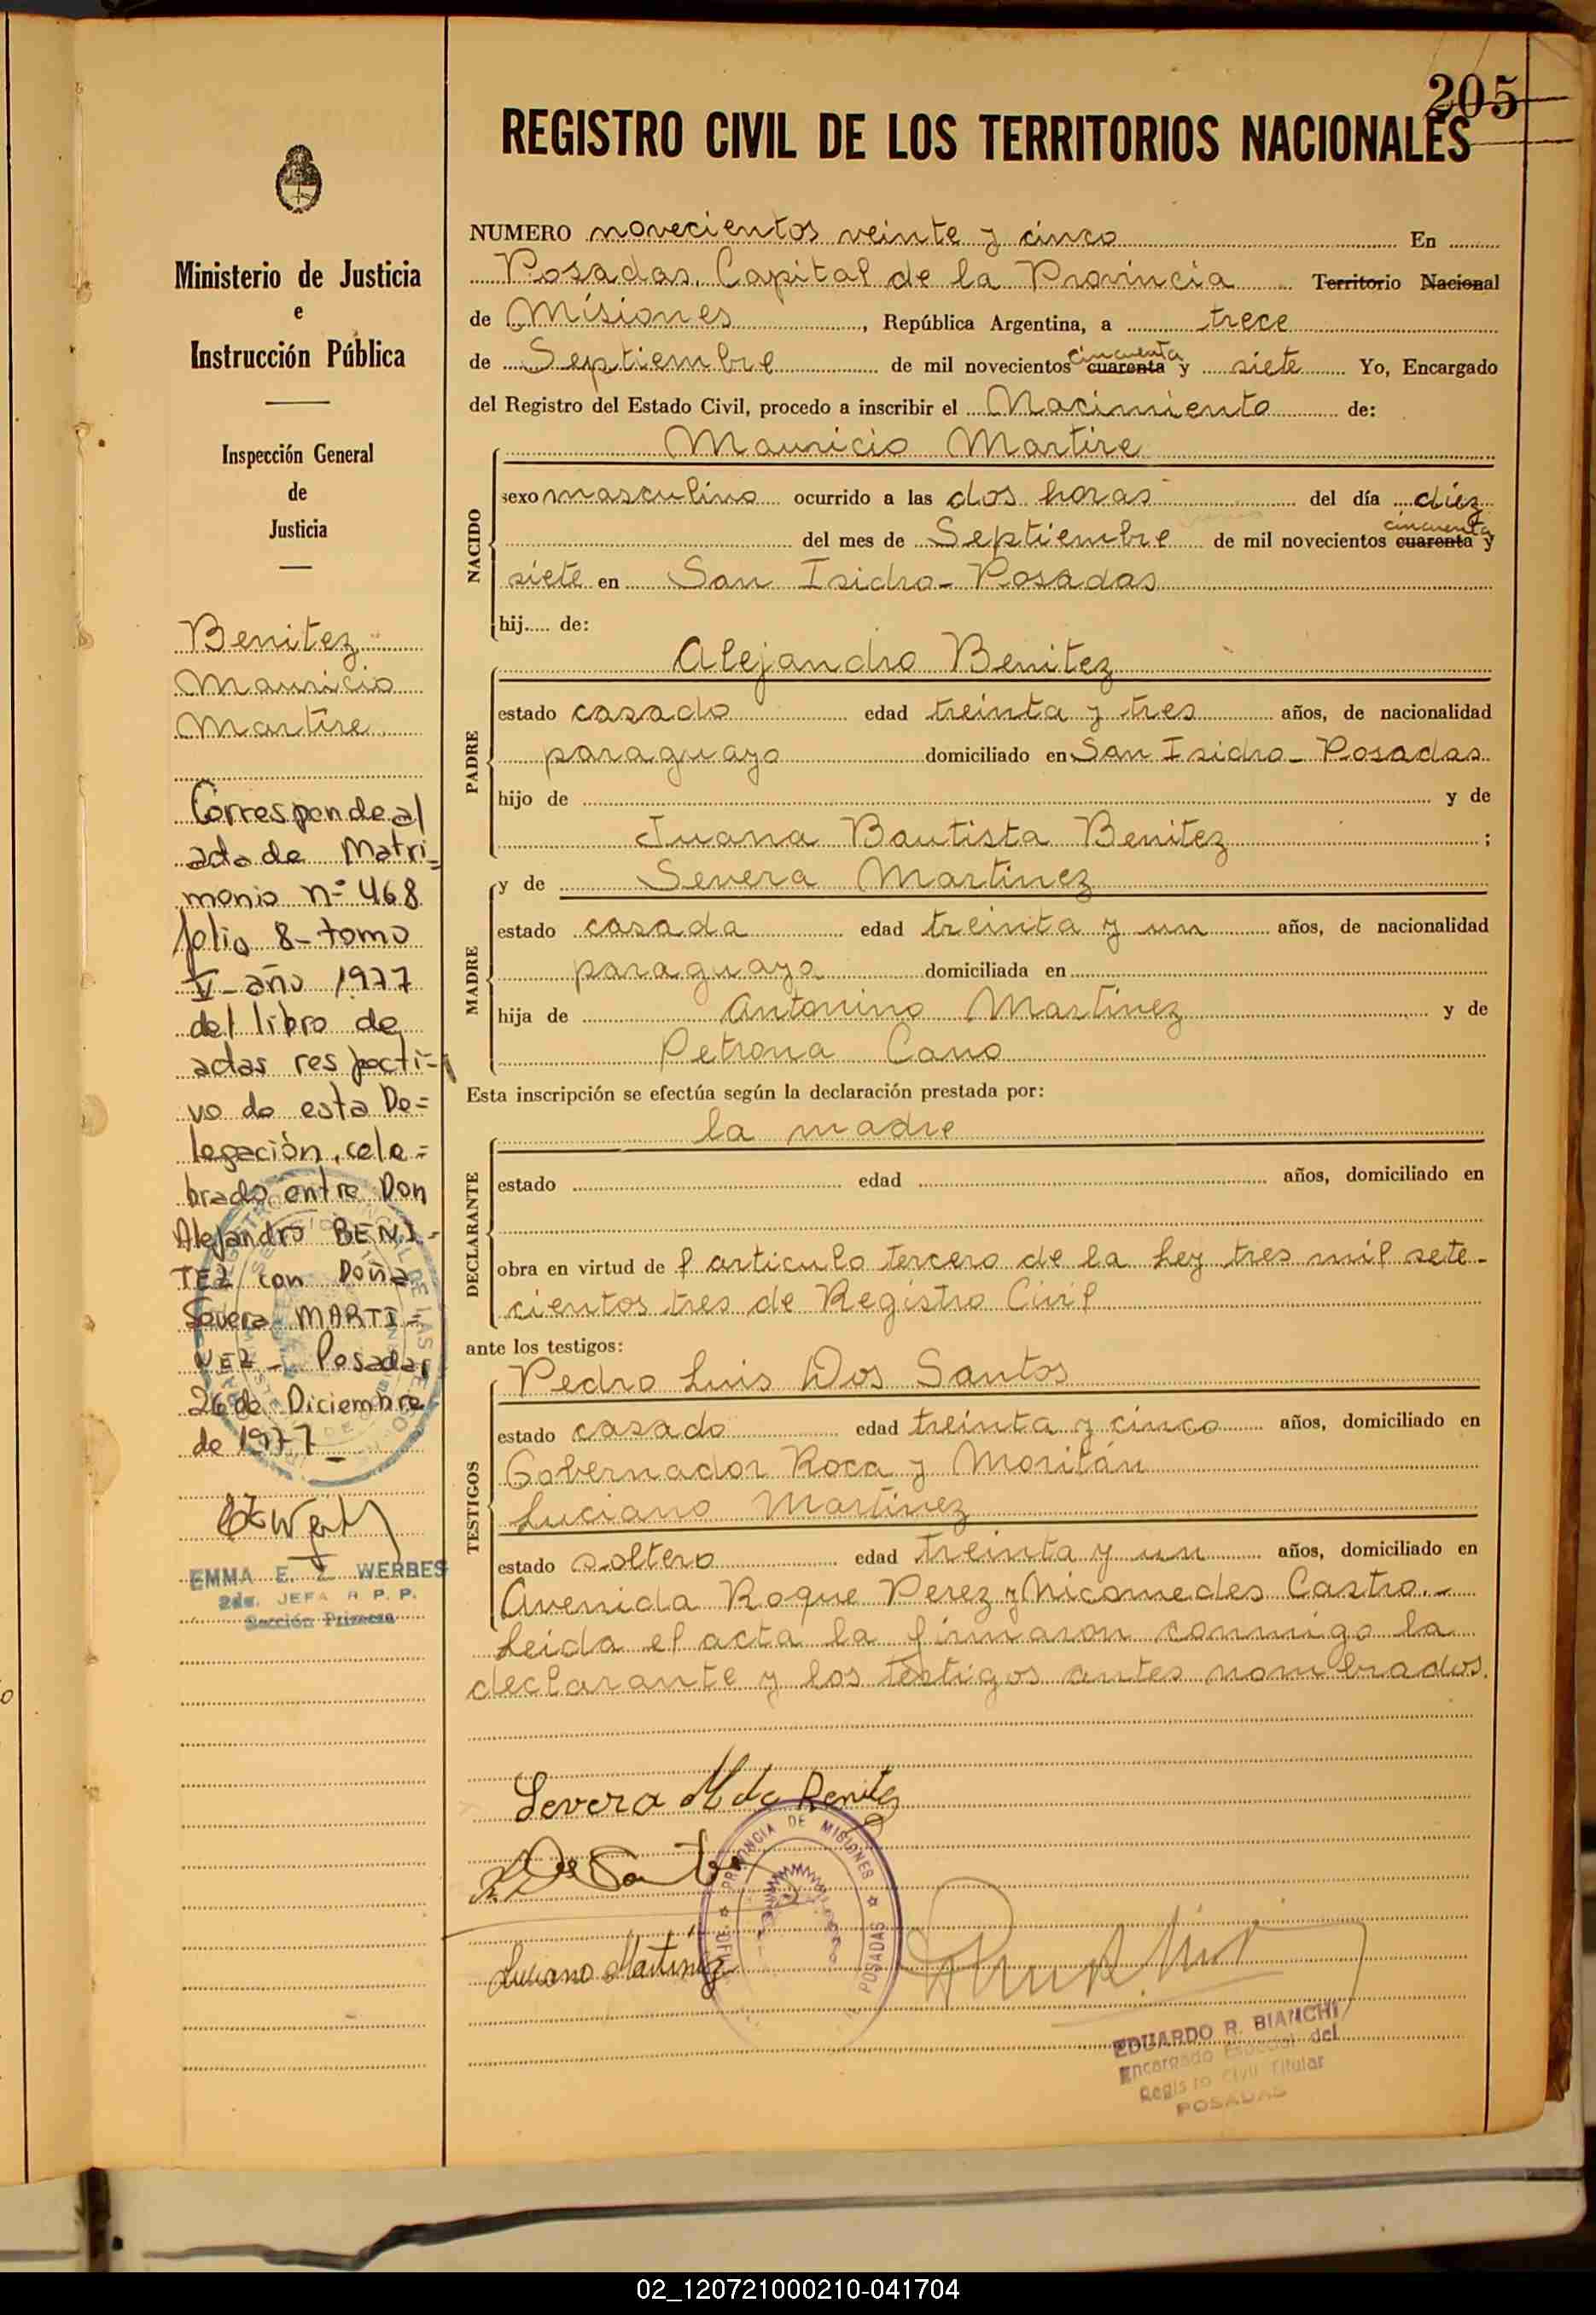 205
REGISTRO CIVIL DE LOS TERRITORIOS NACIONALES
Ministerio de Justicia
e
Instrucción Pública
Inspección General
de
Justicia
Benitez
Mauricio
Martire
Corresponde al
acta de Matri=
monio nº 468
folio 8- tomo
V- año 1977
del libro de
actas respecti-
vo de esta De=
legación, cele=
brado entre Don
Alejandro BENI-
TEZ con Doña
Severa MARTI=
NEZ - Posadas,
26 de Diciembre
de 1977_
EMMA E. Z WERBES
2da. JEFA R P. P.
Sección Primera
NUMERO novecientos veinte y cinco En
Posadas, Capital de la Provincia Territorio Nacional
de Misiones, República Argentina, a trece
de Septiembre de mil novecientos cincuenta cuarenta y siete Yo, Encargado
del Registro del Estado Civil, procedo a inscribir el Nacimiento de:
NACIDO
Mauricio Martire
sexo masculino ocurrido a las dos horas del día diez
del mes de Septiembre de mil novecientos cincuenta cuarenta y
siete en San Isidro - Posadas
hij de:
PADRE
Alejandro Benitez
estado casado edad treinta y tres años, de nacionalidad
paraguayo domiciliado en San Isidro - Posadas
hijo de y de
Juana Bautista Benitez ;
MADRE
y de Severa Martinez
estado casada edad treinta y un años, de nacionalidad
paraguaya domiciliada en
hija de Antonino Martínez y de
Petrona Cano
Esta inscripción se efectúa según la declaración prestada por:
DECLARANTE
la madre
estado edad años, domiciliado en
obra en virtud de l articulo tercero de la Ley tres mil sete-
cientos tres de Registro Civil
ante los testigos:
TESTIGOS
Pedro Luis Dos Santos
estado casado edad treinta y cinco años, domiciliado en
Gobernador Roca y Moritán
Luciano Martínez
estado soltero edad treinta y un años, domiciliado en
Avenida Roque Perez y Nicomedes Castro.-
Leida el acta la firmaron conmigo la
declarante y los testigos antes nombrados.
Severa M de Benitez
Dos Santos
Luciano Martínez
PROVINCIA DE MISIONES
POSADAS
EDUARDO R. BIANCHI
Encargado Especial del
Registro Civil Titular
POSADAS
02_120721000210-041704